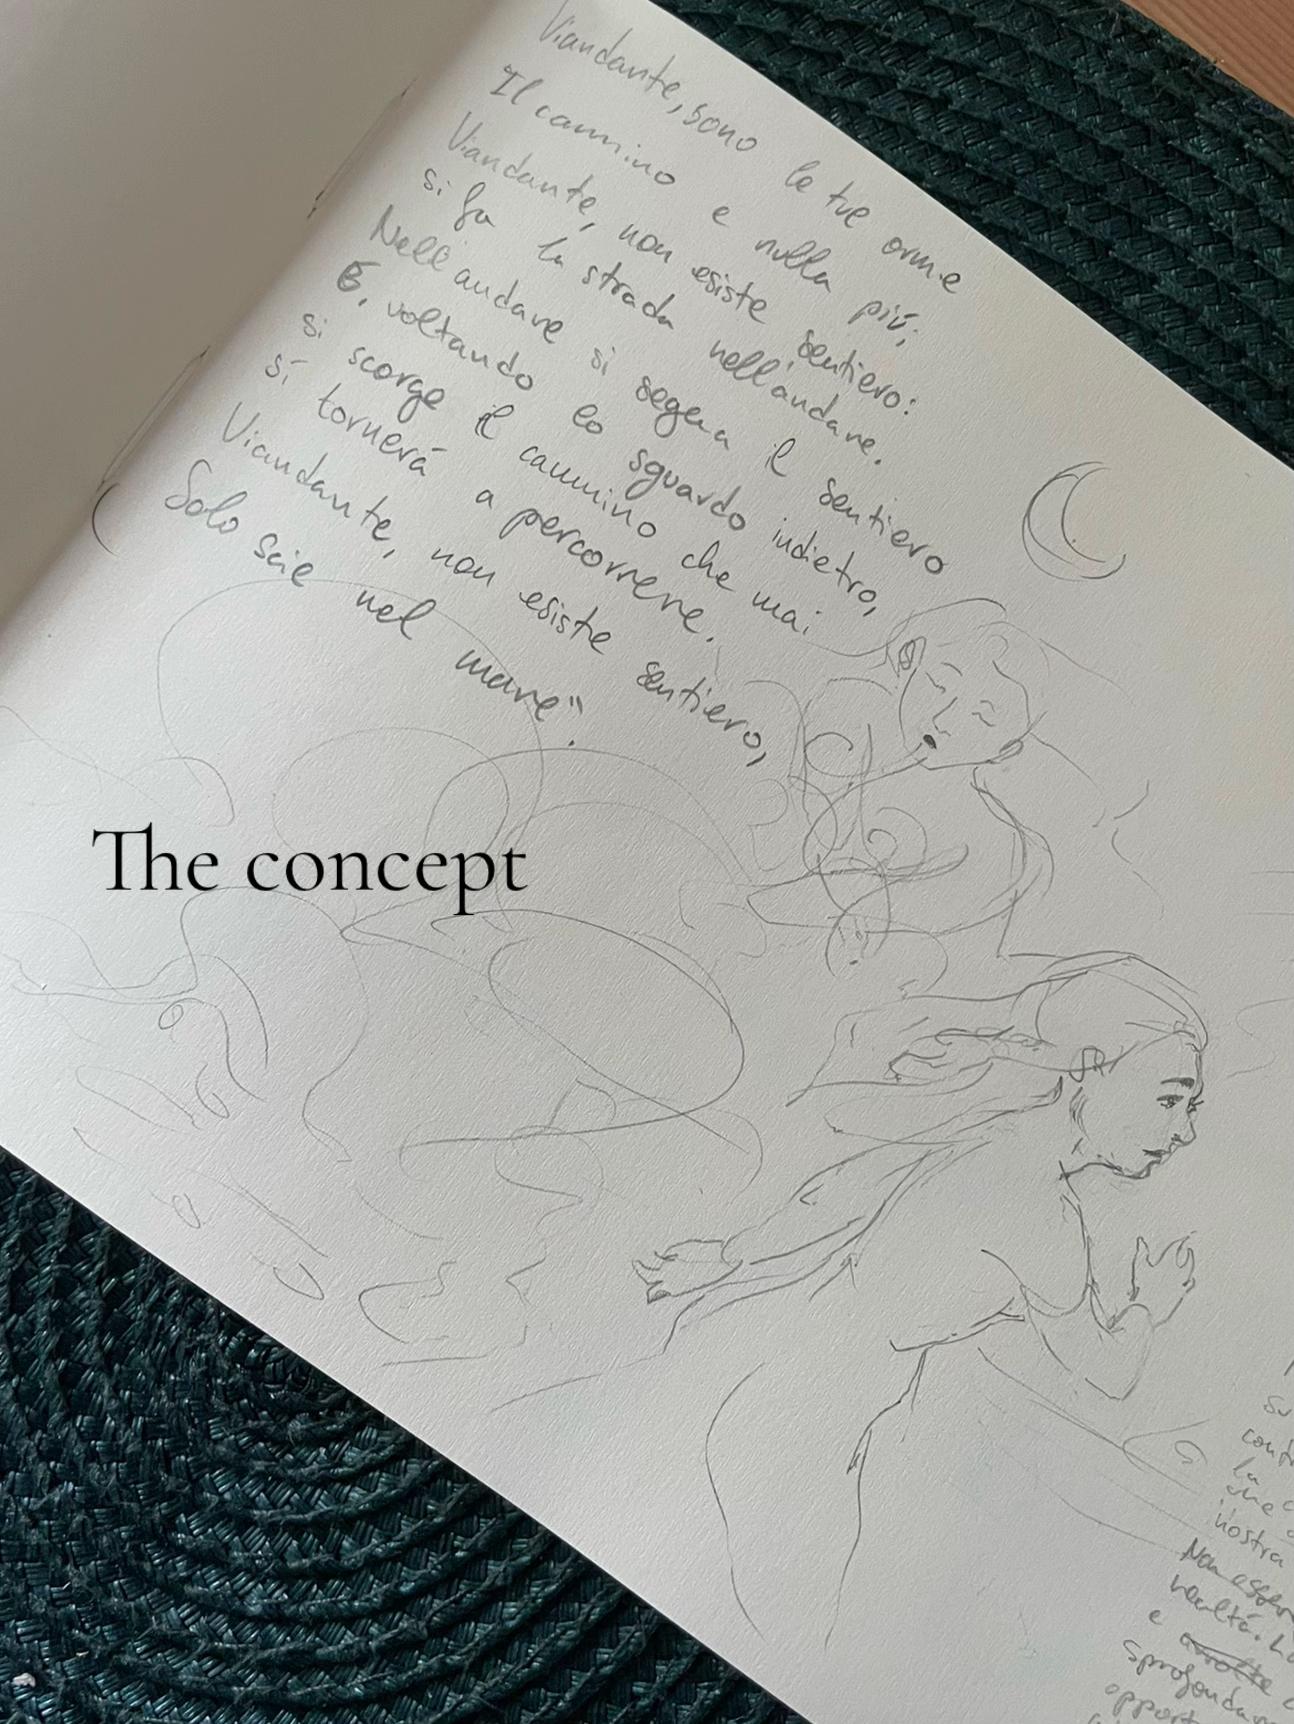 Viandante, sono le tue orme
Il cammino e nulla più;
Viandante, non esiste sentiero:
si fa la strada nell'andare.
Nell'andare si segna il sentiero
E, voltando lo sguardo indietro,
si scorge il cammino che mai
si tornerá a percorrere.
Viandante, non esiste sentiero,
Solo scie nel mare".
The concept
la
che
nostra
Non
e